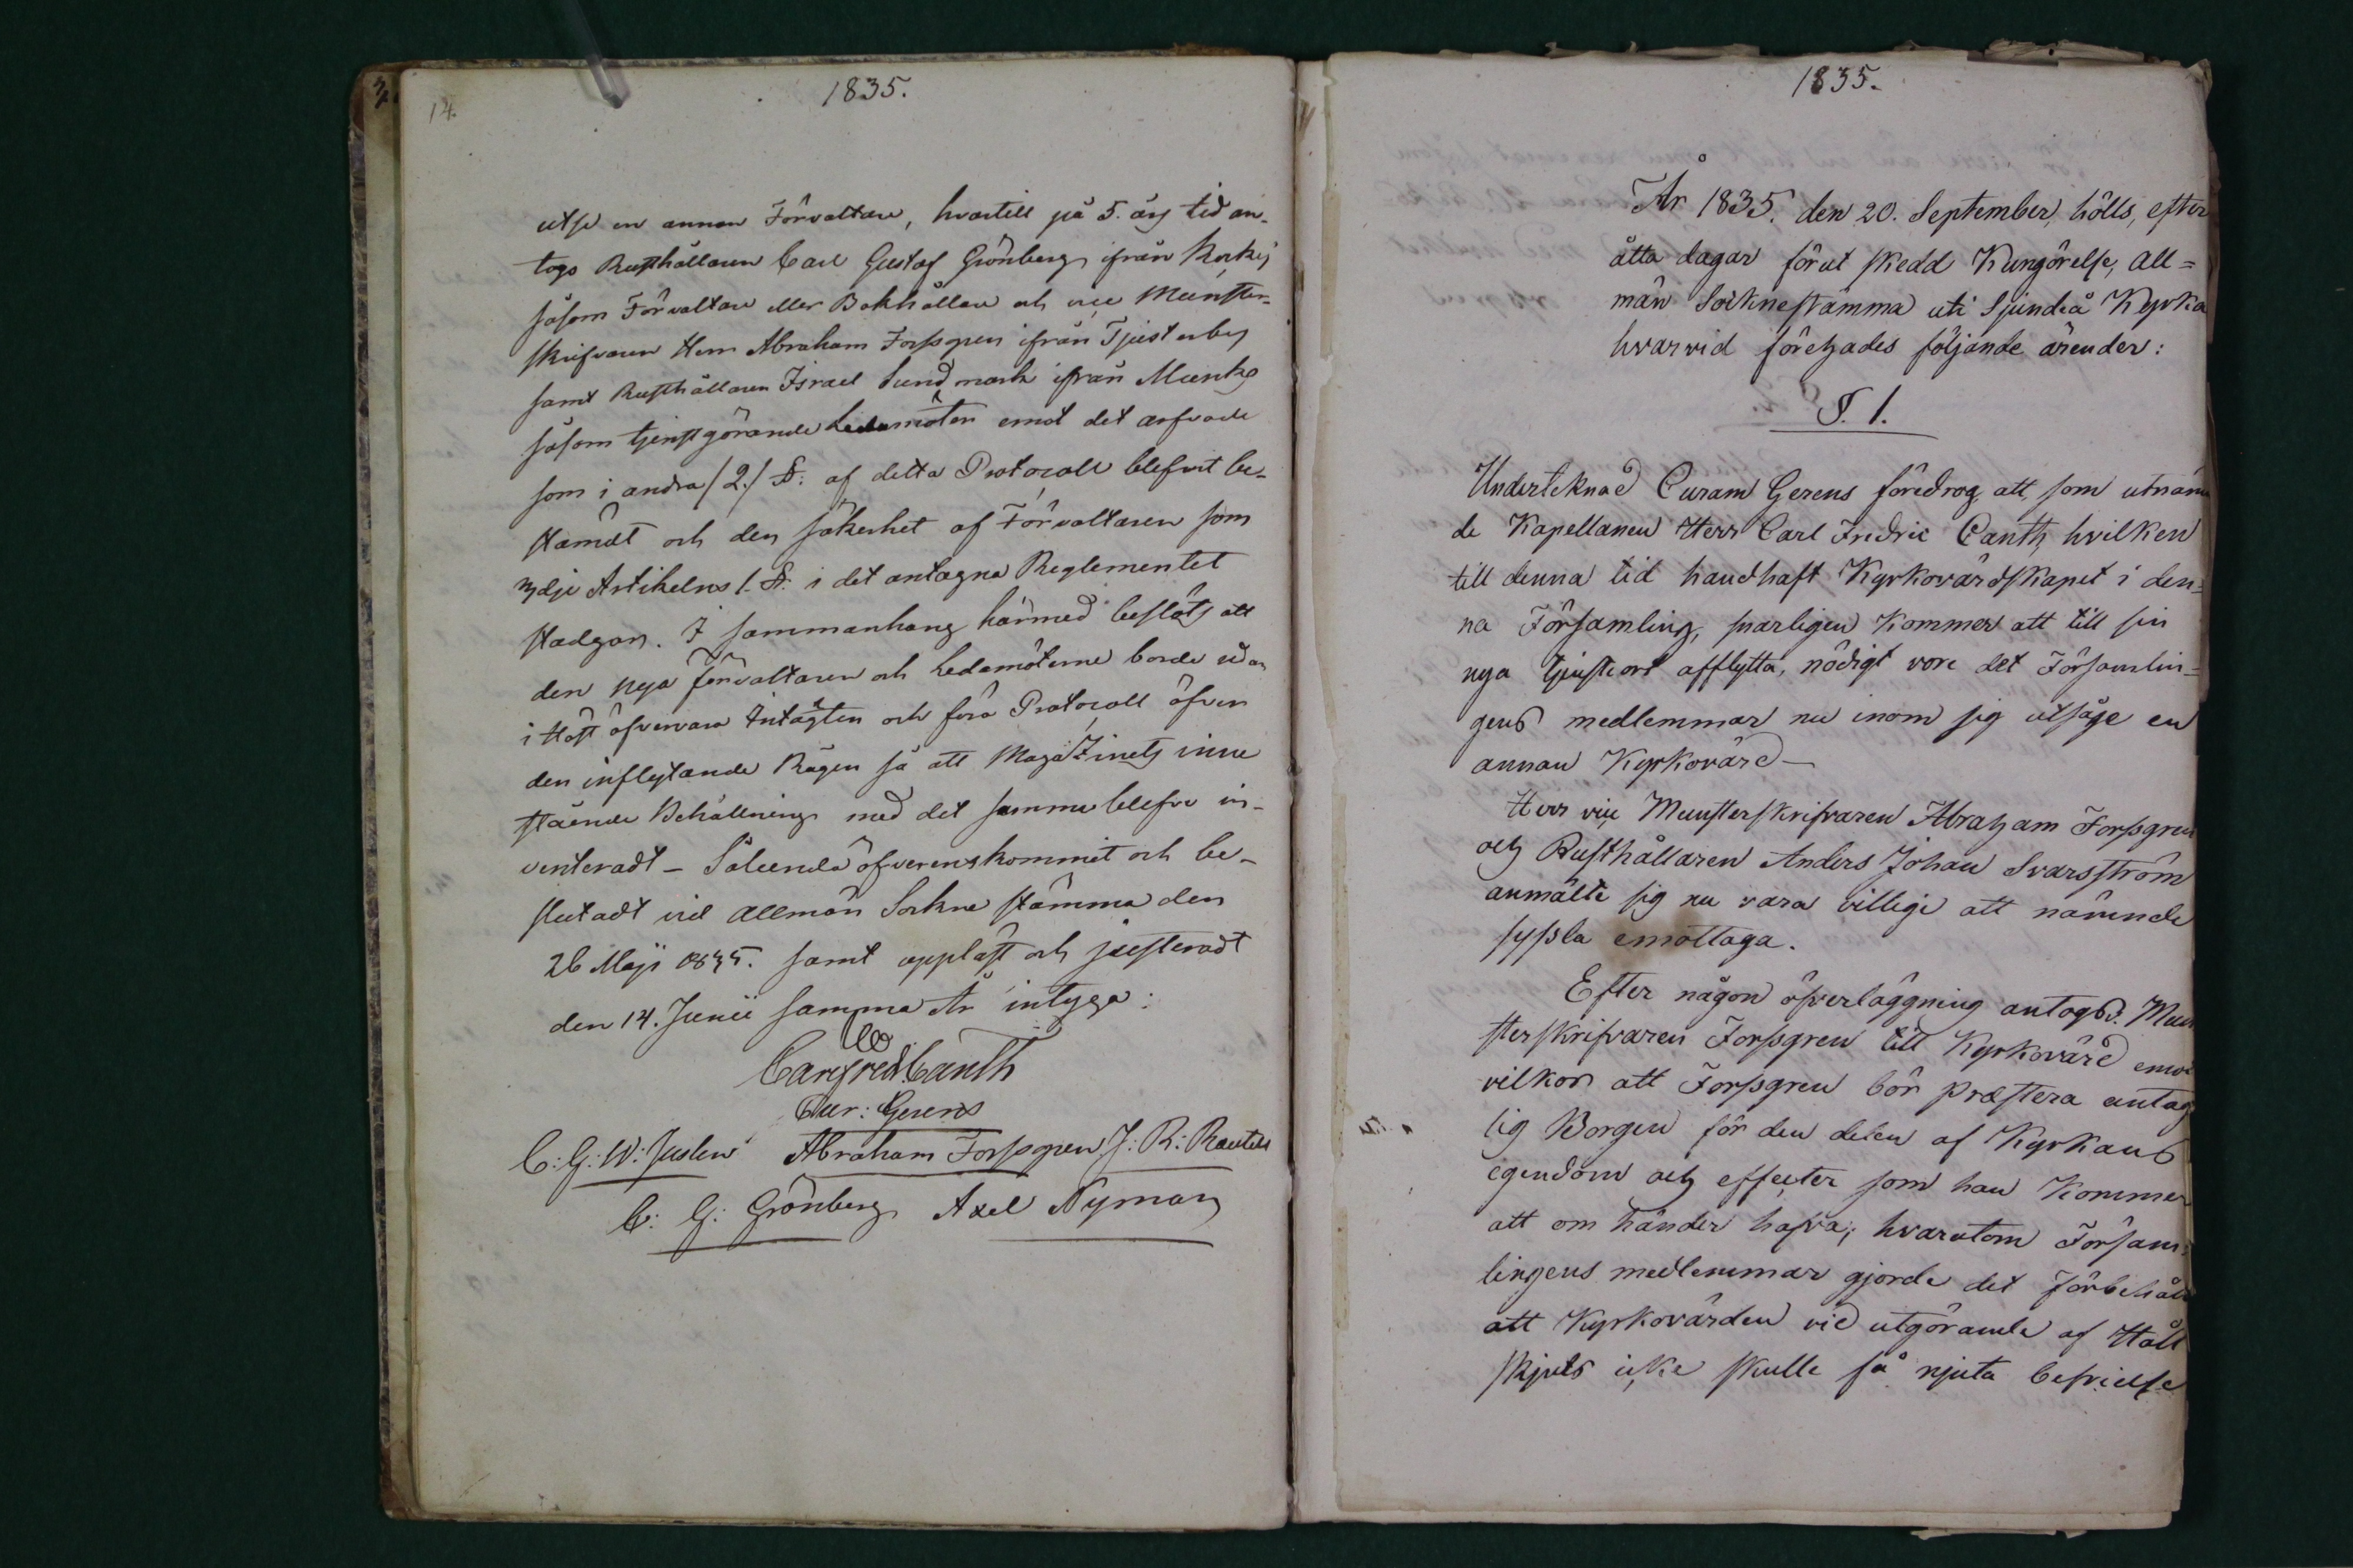 14.
1835.
utse en annan Förvaltare, hvartill på 5. års tid an-
togs Rusthållaren Carl Gustaf Grönberg ifrån Korkis
såsom Förvaltare eller Bokhållare och vice Munster-
skrifvaren Herr Abraham Forssgren ifrån Tjusterby
samt Rusthållaren Israel Sundmark ifrån Munks
såsom tjenstgörande Ledamöter emot det arfvode
som i andra /2./ §: af detta Protocoll blefvit be-
stämdt och den säkerhet af Förvaltaren som
3dje Artikelns 1. §: i det antagna Reglementet
stadgar. I sammanhang härmed beslöts att
den nya förvaltaren och Ledamöterne borde redan
i Höst öfvervara Intägten och föra Protocoll öfver
den inflytande Rågen så att Magazinets inne
stående Behållning med det samma blefve in-
venteradt – Sålunda öfverenskommit och be-
slutadt vid Allmän Sockne stämma den
26 Maji 1835. samt uppläst och justeradt
den 14. Junii samma År intyga:
Carl Fred. Canth
Cur: Gerens
C: G: W: Juslen Abraham Forssgren J: R: Rautell
C: G: Grönberg Axel Nyman
1835.
År 1835. den 20. September, hölls, efter
åtta dagar förut skedd Kungörelse, all=
män Socknestämma uti Sjundeå Kyrka
hvarvid företogades följande ärender:
§. 1.
Undertecknad Curam Gerens föredrog, att, som utnäm
de Kapellanen Herr Carl Fredric Canth, hvilken
till denna tid handhaft Kyrkovärdskapet i den=
na Församling, snarligen kommer att till sin
nya tjensteort afflytta, nödigt vore det Församlin=
gens medlemmar nu inom sig utsåge en
annan Kyrkovärd –
Herr vice Munsterskrifvaren Abraham Forssgren
och Rusthållaren Anders Johan Svarsström
anmälte sig nu vara villige att nämnde
syssla emottaga.
Efter någon öfverläggning antogs v. Mun
sterskrifvaren Forssgren till Kyrkovärd emot
vilkor att Forssgren bör præstera antag
lig Borgen för den delen af Kyrkans
egendom och effecter som han kommer
att om händer hafva; hvarutom Försam=
lingens medlemmar gjorde det förbehåll
att Kyrkovärden vid utgörande af Håll
skjuts icke skulle få njuta befrielse